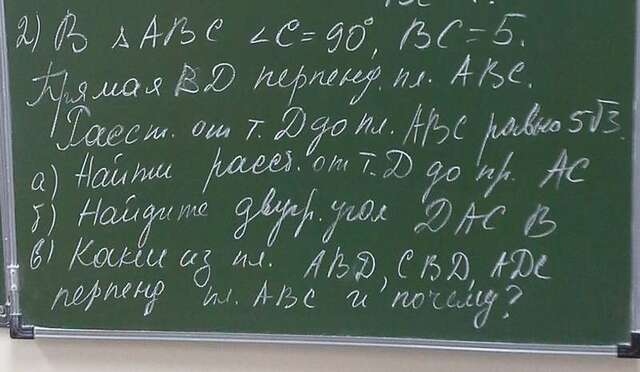 2) В △ АВС ∠С = 90°, ВС = 5.
Прямая BD перпенд. пл. АВС.
Расст. от т. D до пл. АВС равно 5√3.
а) Найти расст. от т. D до пр. АС
б) Найдите двугр. угол DACB
в) Какие из пл. ABD, CBD, ADC
перпенд пл. АВС и почему?